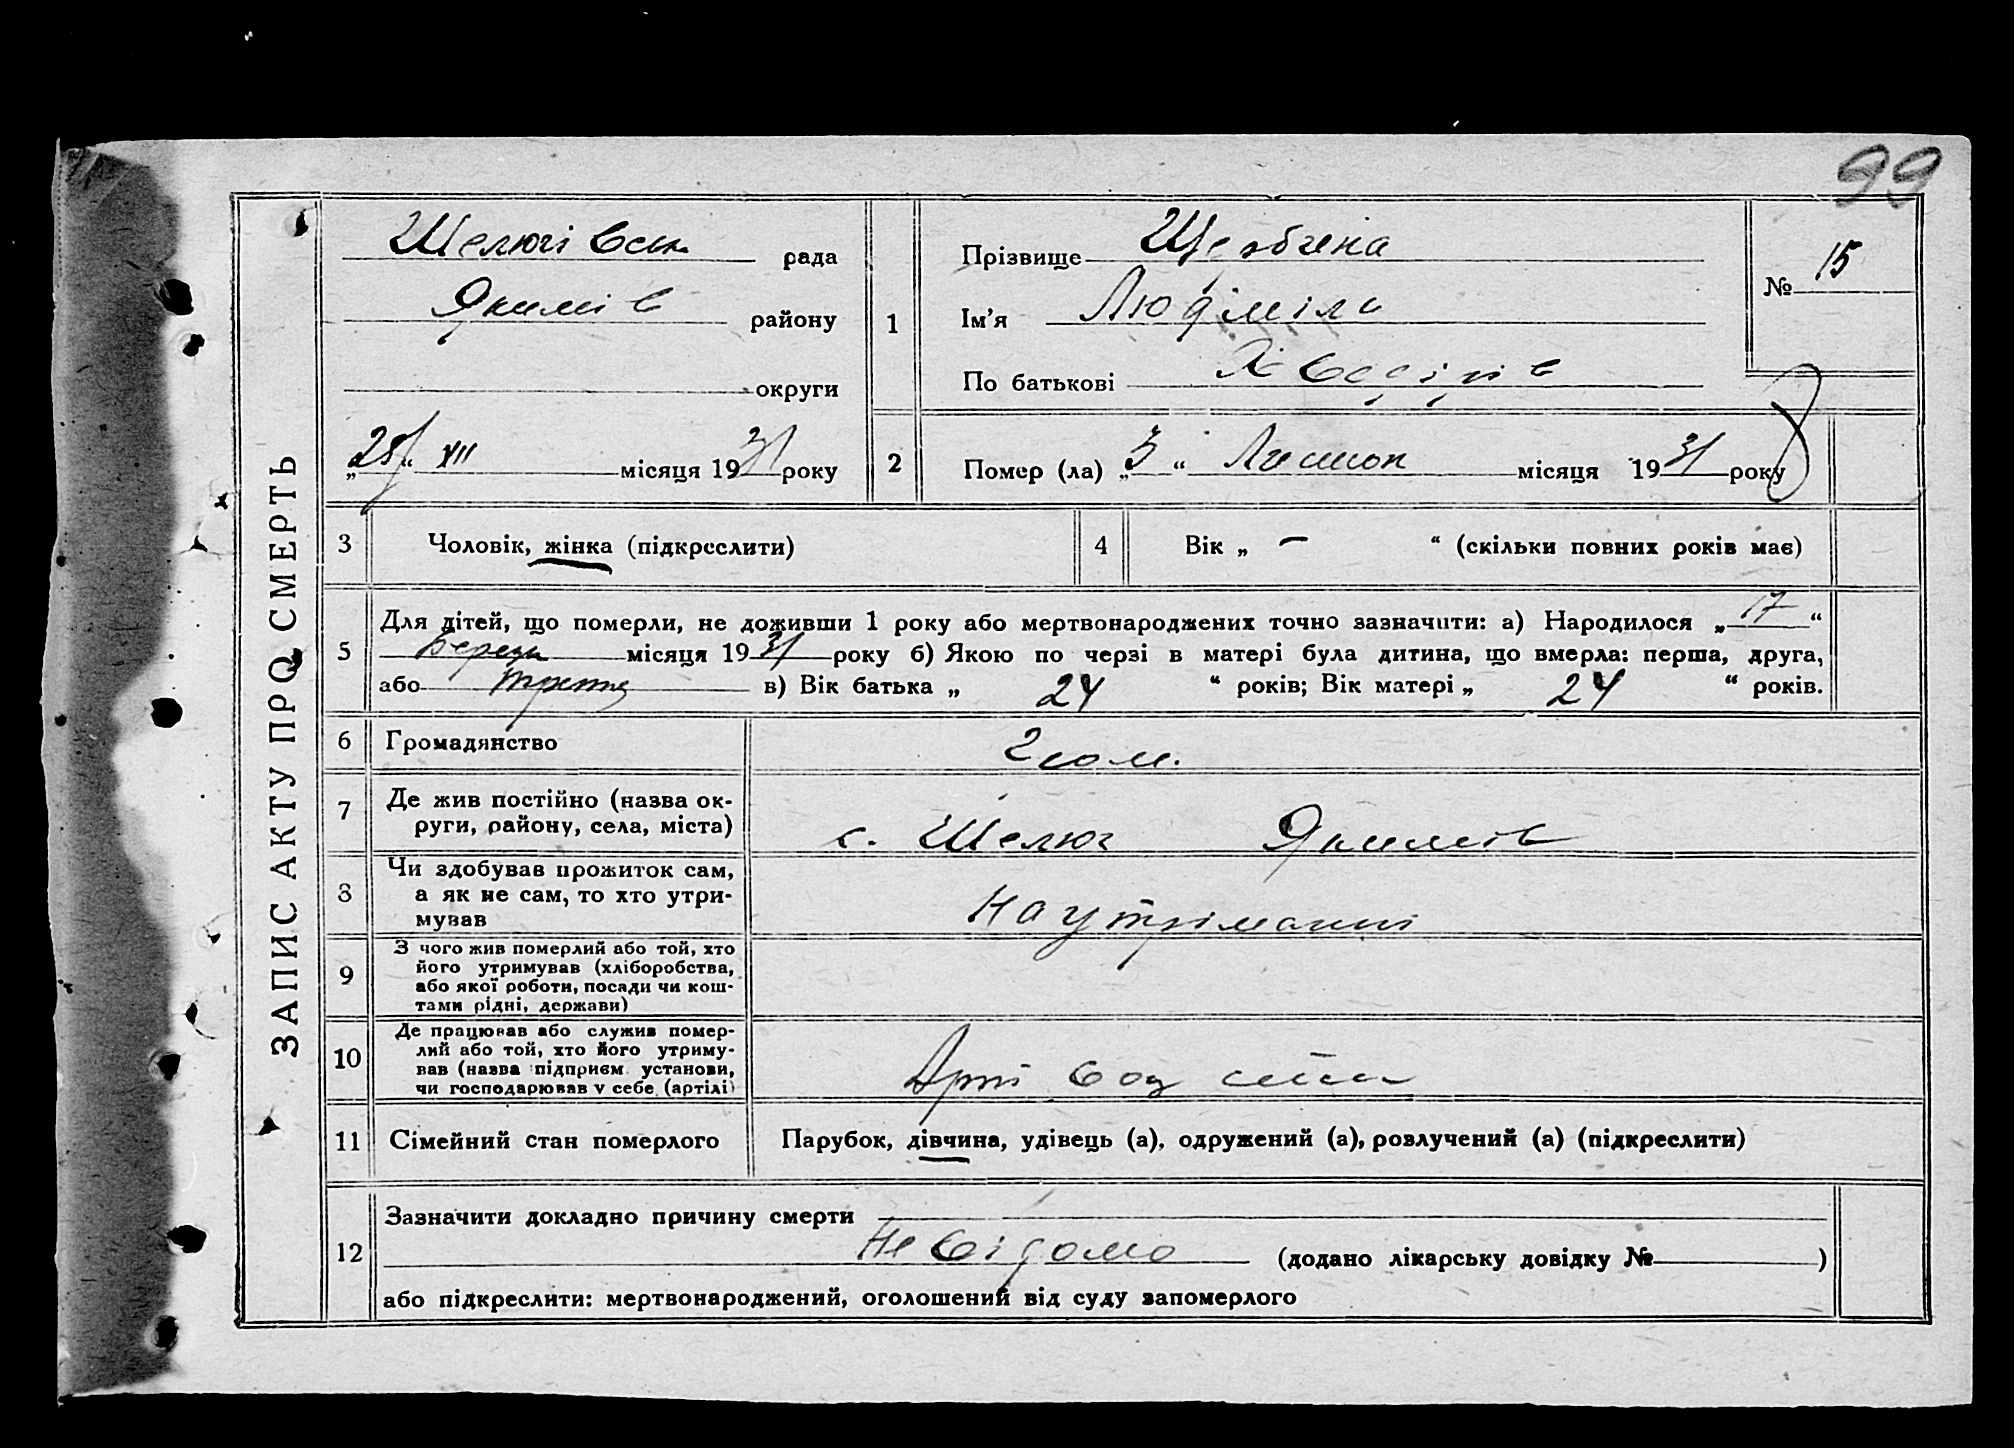 99
ЗАПИС АКТУ ПРО СМЕРТЬ
Шелюгівськ рада
Якимів району
округи
„25“ XII місяця 1931 року
1 Прізвище Щербина
Ім'я Людміла
По батькові
№ 15
2 Помер (ла) „3“ місяця 1931 року
3 Чоловік, жінка (підкреслити)
4 Вік „ — “ (скільки повних років має)
5 Для дітей, що померли, не доживши 1 року або мертвонароджених точно зазначити: а) Народилося „17“
Березня місяця 1931 року б) Якою по черзі в матері була дитина, що вмерла: перша, друга,
або третя в) Вік батька „ 24 “ років; Вік матері „ 24 “ років.
6 Громадянство
7 Де жив постійно (назва ок-
руги, району, села, міста) с. Шелюг Якимів
8 Чи здобував прожиток сам,
а як не сам, то хто утри-
мував На утріманні
9 З чого жив померлий або той, хто
його утримував (хліборобства,
або якої роботи, посади чи кош-
тами рідні, держави)
10 Де працював або служив помер-
лий або той, хто його утриму-
вав (назва підприєм. установи,
чи господарював у себе (артілі) Арті
11 Сімейний стан померлого Парубок, дівчина, удівець (а), одружений (а), розлучений (а) (підкреслити)
12 Зазначити докладно причину смерти
Не відомо (додано лікарську довідку № )
або підкреслити: мертвонароджений, оголошений від суду запомерлого